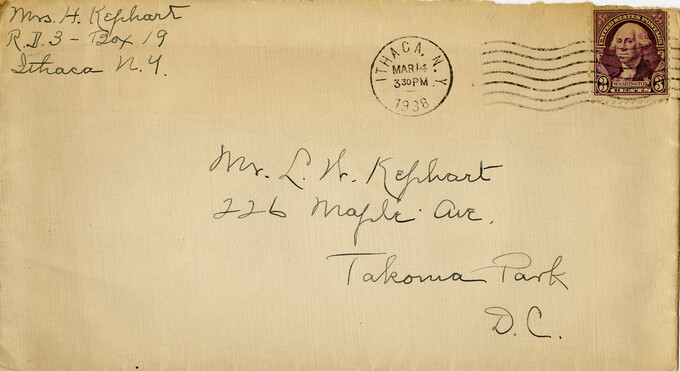 Mrs. H. Kephart
R.D.3 - Box 19
Ithaca N.Y.
ITHACA, N.Y.
MAR 14
3 30 PM
1938
UNITED STATES POSTAGE
WASHINGTON
3 3
CENTS
Mr. L. W. Kephart
226 Maple Ave.
Takoma Park
D.C.